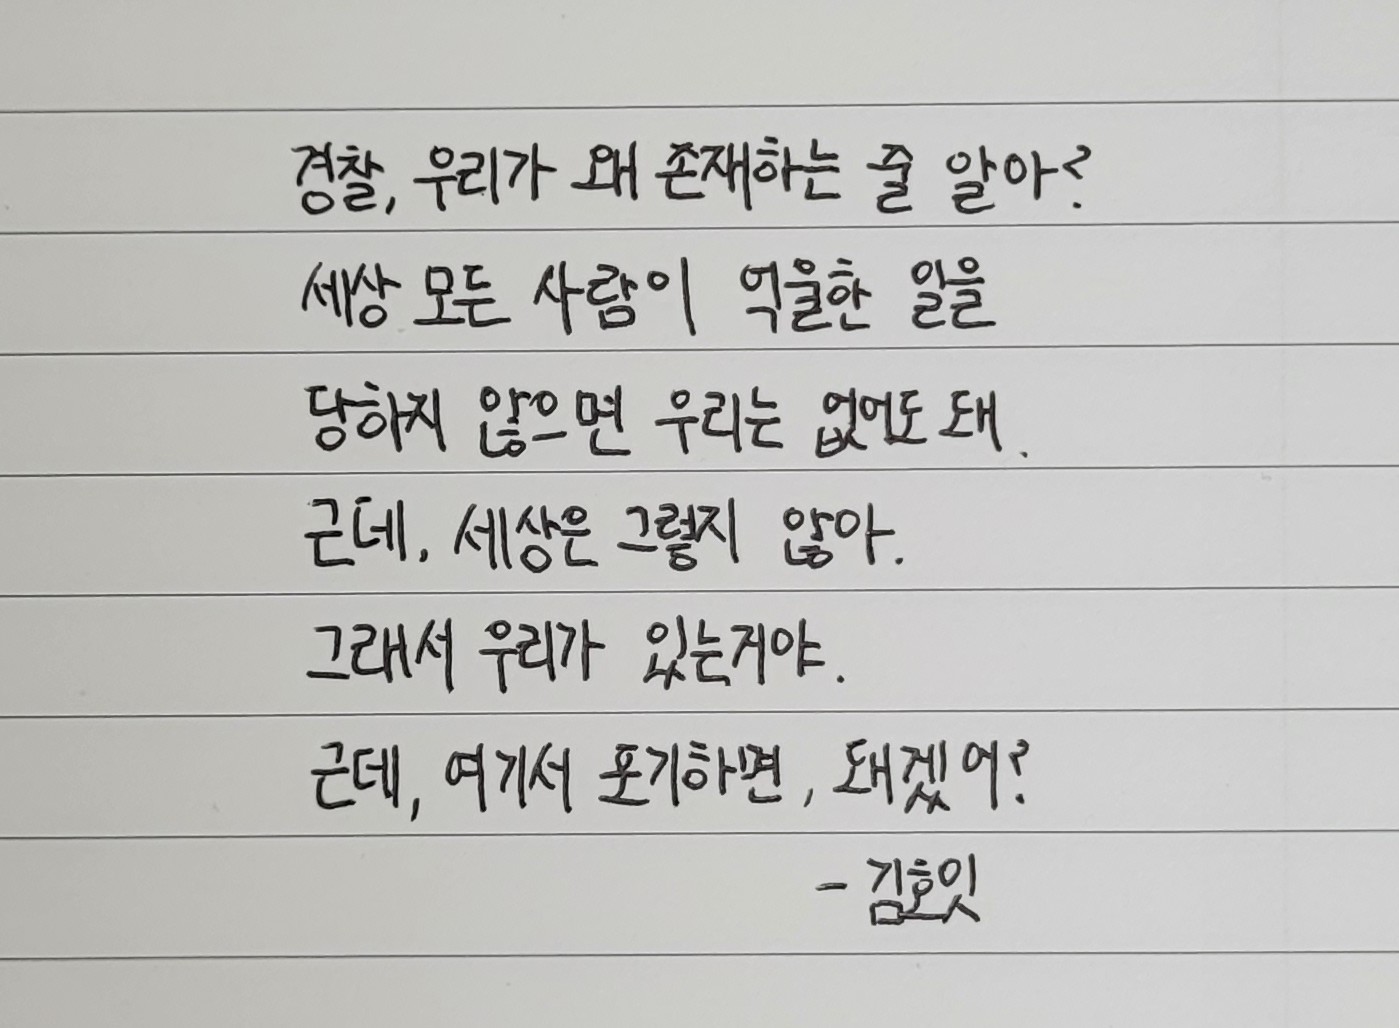 경찰, 우리가 왜 존재하는 줄 알아?
세상 모든 사람이 억울한 일을
당하지 않으면 우리는 없어도 돼.
근데, 세상은 그렇지 않아.
그래서 우리가 있는거야.
근데, 여기서 포기하면, 돼겠어?
- 김호잇